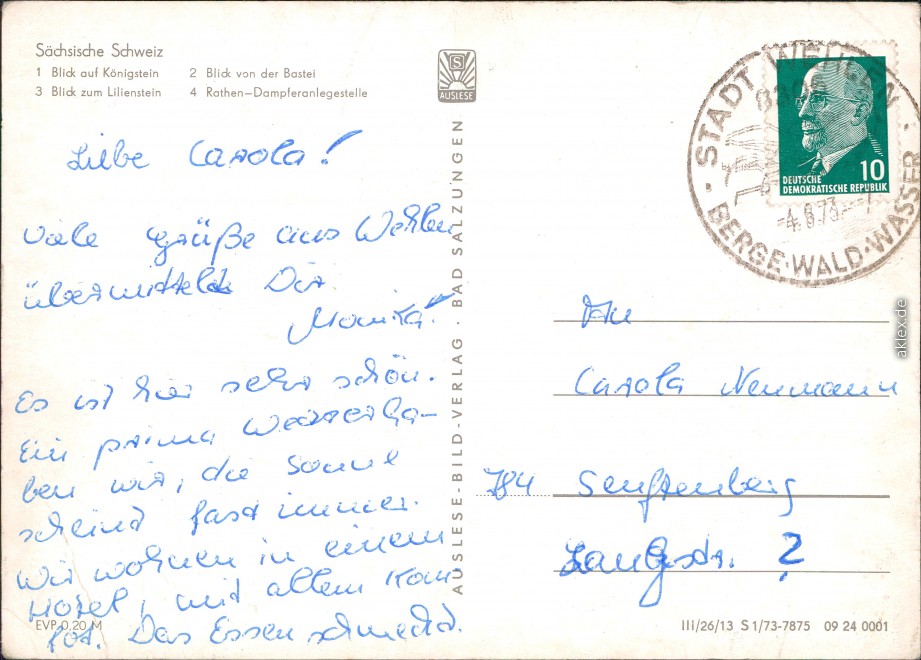 Sächsische Schweiz
1 Blick auf Königstein 2 Blick von der Bastei
3 Blick zum Lilienstein 4 Rathen—Dampferanlegestelle
S
AUSLESE
Liebe Carola!
Viele Grüße aus Wehlen
übermittelt Dir
Monika.
Es ist hier sehr schön.
Ein prima Wetter ha-
ben wir, die Sonne
scheint fast immer.
Wir wohnen in einem
Hotel, mit allem Kom
fot. Das Essen schmeckt.
EVP 0,20 M
AUSLESE-BILD-VERLAG · BAD SALZUNGEN
STADT WEHLEN
BERGE·WALD·WASSER
DEUTSCHE 10
DEMOKRATISCHE REPUBLIK
An
Carola Neumann
784 Senftenberg
Langstr. 2
III/26/13 S 1/73-7875 09 24 0001
aklex.de